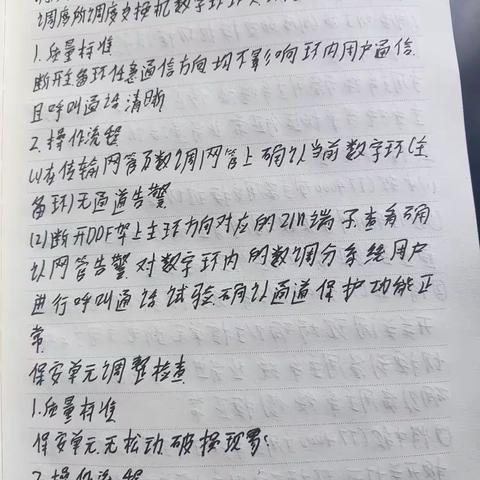 调度所调度交换机数字环
1.质量标准
断开主备环任意通信方向均不影响环内用户通信
且呼叫通话清晰
2.操作流程
(1)在传输网管及数调网管上确认当前数字环(主
备环)无通道告警
(2)断开DDF架上主环方向对应的2M端子查看确
认网管告警对数字环内的数调分系统用户
进行呼叫通话试验确认通道保护功能正
常
保安单元调整检查
1.质量标准
保安单元无松动破损现象;
2.操作流程